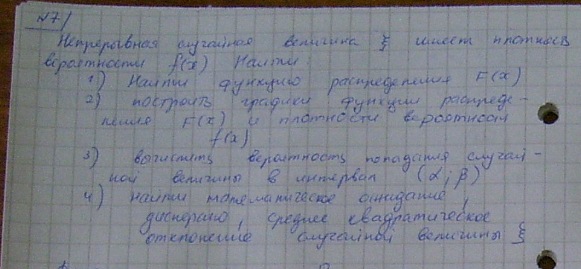 №7/
Непрерывная случайная величина ξ имеет плотность
вероятности f(x) Найти:
1) Найти функцию распределения F(x)
2) построить графики функции распреде-
ления F(x) и плотности вероятности
f(x)
3) вычислить вероятность попадания случай-
ной величины в интервал (α; β)
4) найти математическое ожидание,
дисперсию, среднее квадратическое
отклонение случайной величины ξ